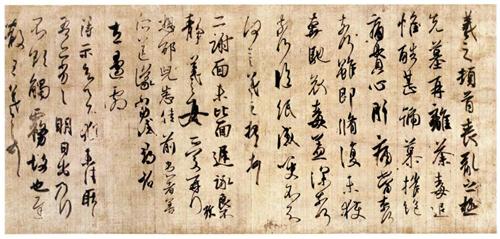 羲之頓首喪亂之極
先墓再離荼毒追
惟酷甚號慕摧絕
痛貫心肝痛當奈何
奈何雖即脩復未獲
奔馳哀毒益深奈何
奈何臨紙感哽不知
何言羲之頓首頓首
二謝面未比面遲詠良不
靜羲之女愛再拜
想邵兒悉佳前患者善
左邊劇
得示知足下猶未佳耿耿
吾亦劣劣明日出乃行
不欲觸霧故也遲
散王羲之頓首